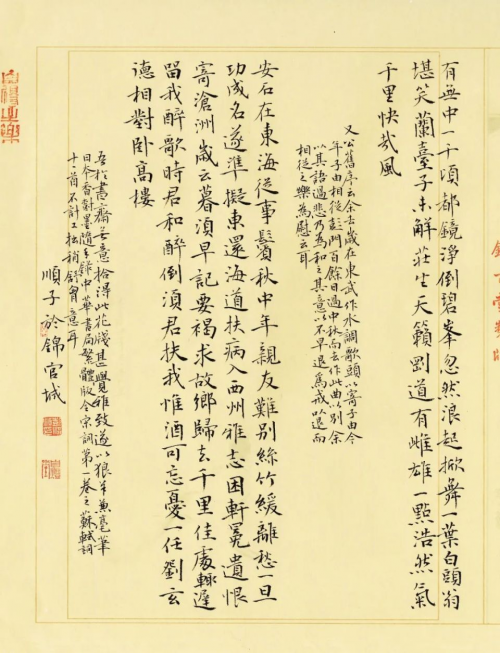 有無中一千頃都鏡淨倒碧峯忽然浪起掀舞一葉白頭翁
堪笑蘭臺子未解莊生天籟剛道有雌雄一點浩然氣
千里快哉風
又公舊序云余去歲在東武作水調歌頭以寄子由今
年子由相從彭門百餘日過中秋而去作此曲以別余
以其語過悲乃為和之其意以不早退為戒以退而
相從之樂為慰云耳
安石在東海從事鬢秋中年親友難別絲竹緩離愁一旦
功成名遂準擬東還海道扶病入西州雅志困軒冕遺恨
寄滄洲歲云暮須早記要褐求故鄉歸去千里佳處輒遲
留我醉歌時君和醉倒須君扶我惟酒可忘憂一任劉玄
德相對卧高樓
吾於書齋無意拾得此花牋甚覺雅致遂以狼羊兼毫筆
日本香墨隨手錄中華書局繁體版全宋詞第一卷之蘇軾詞
十首不計工拙稍會意耳
順子於錦官城